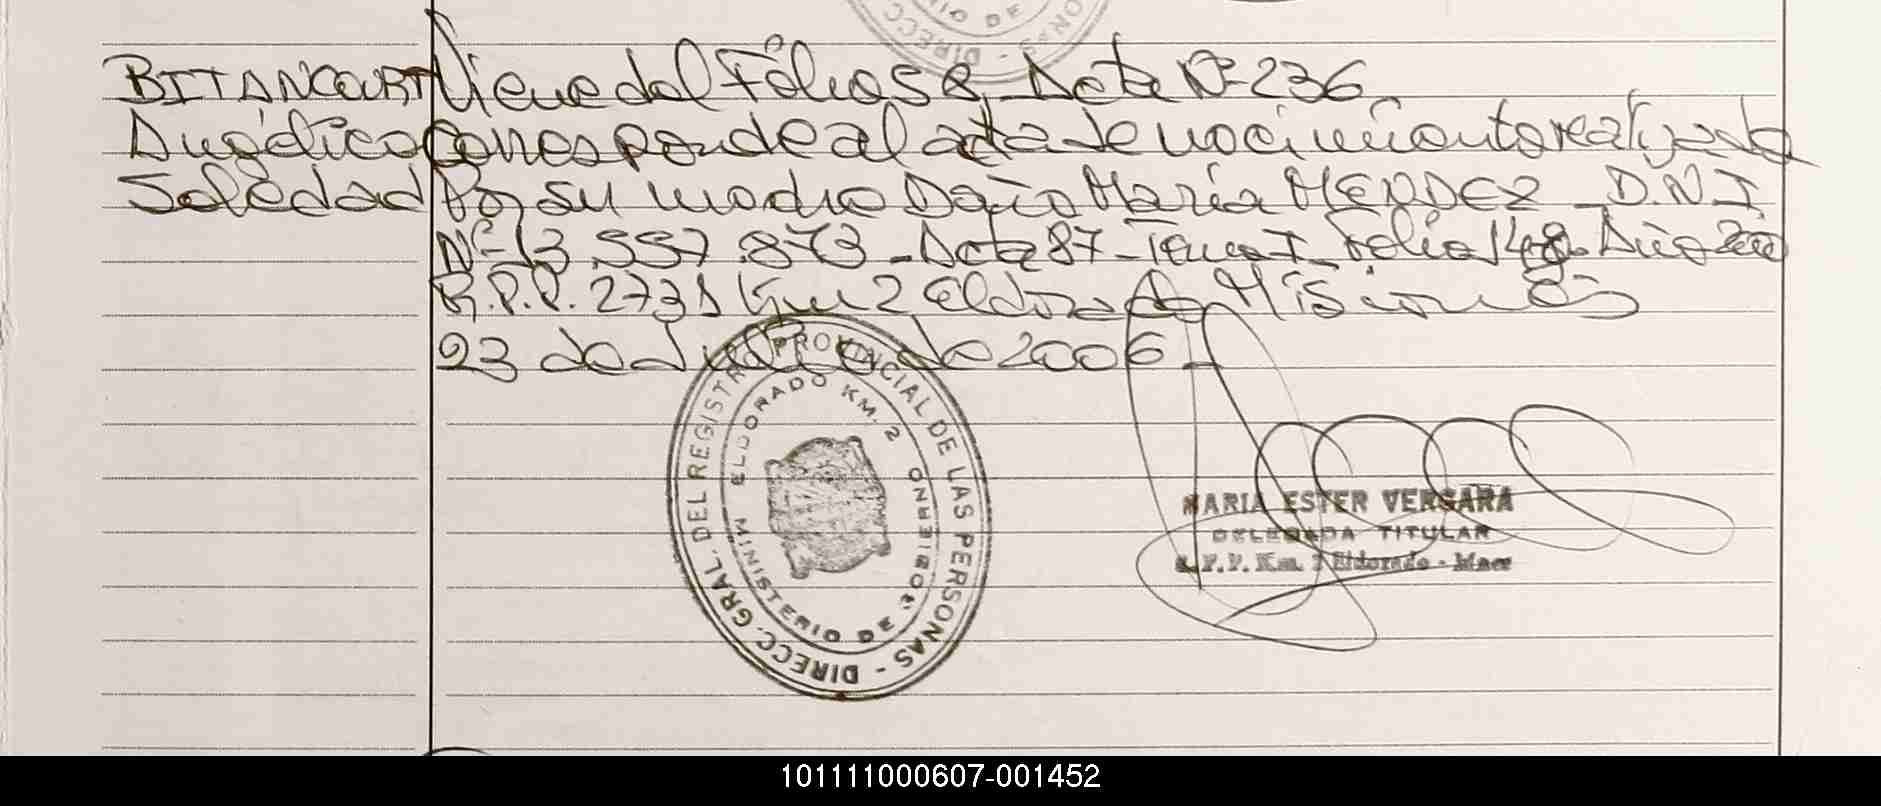 BITANCOURT
Angélica
Soledad
Viene del Folio 58, Acta Nº 236
Corresponde al acta de nacimiento realizada
Por su madre Doña María MENDEZ - D.N.I
Nº 13.557.873 - Acta 87 - Tomo I - Folio 148 - Año 2000
R.P.P. 2731 Km 2 Eldorado Misiones
23 de de 2006
DIRECC. GRAL. DEL REGISTRO PROVINCIAL DE LAS PERSONAS -
ELDORADO KM. 2
MINISTERIO DE GOBIERNO
MARIA ESTER VERGARA
DELEGADA TITULAR
R.P.P. Km. 2 Eldorado - Mnes
101111000607-001452